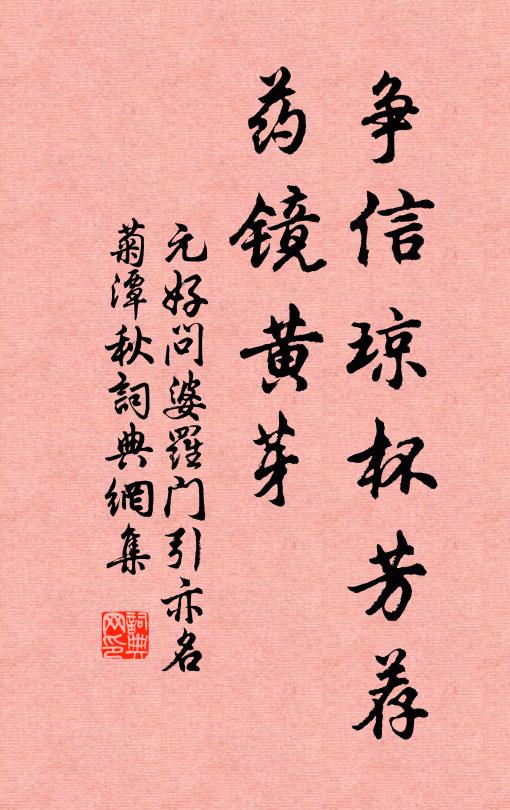 争信琼杯芳荐
药镜黄芽
元好问婆羅门引亦名
菊潭秋詞典網集
詞典网印